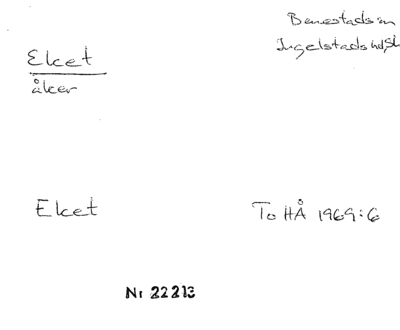 Benestads sn
Ingelstads hd, Sk
Eket
åker
Eket
To HÅ 1969:6
Nr 22213